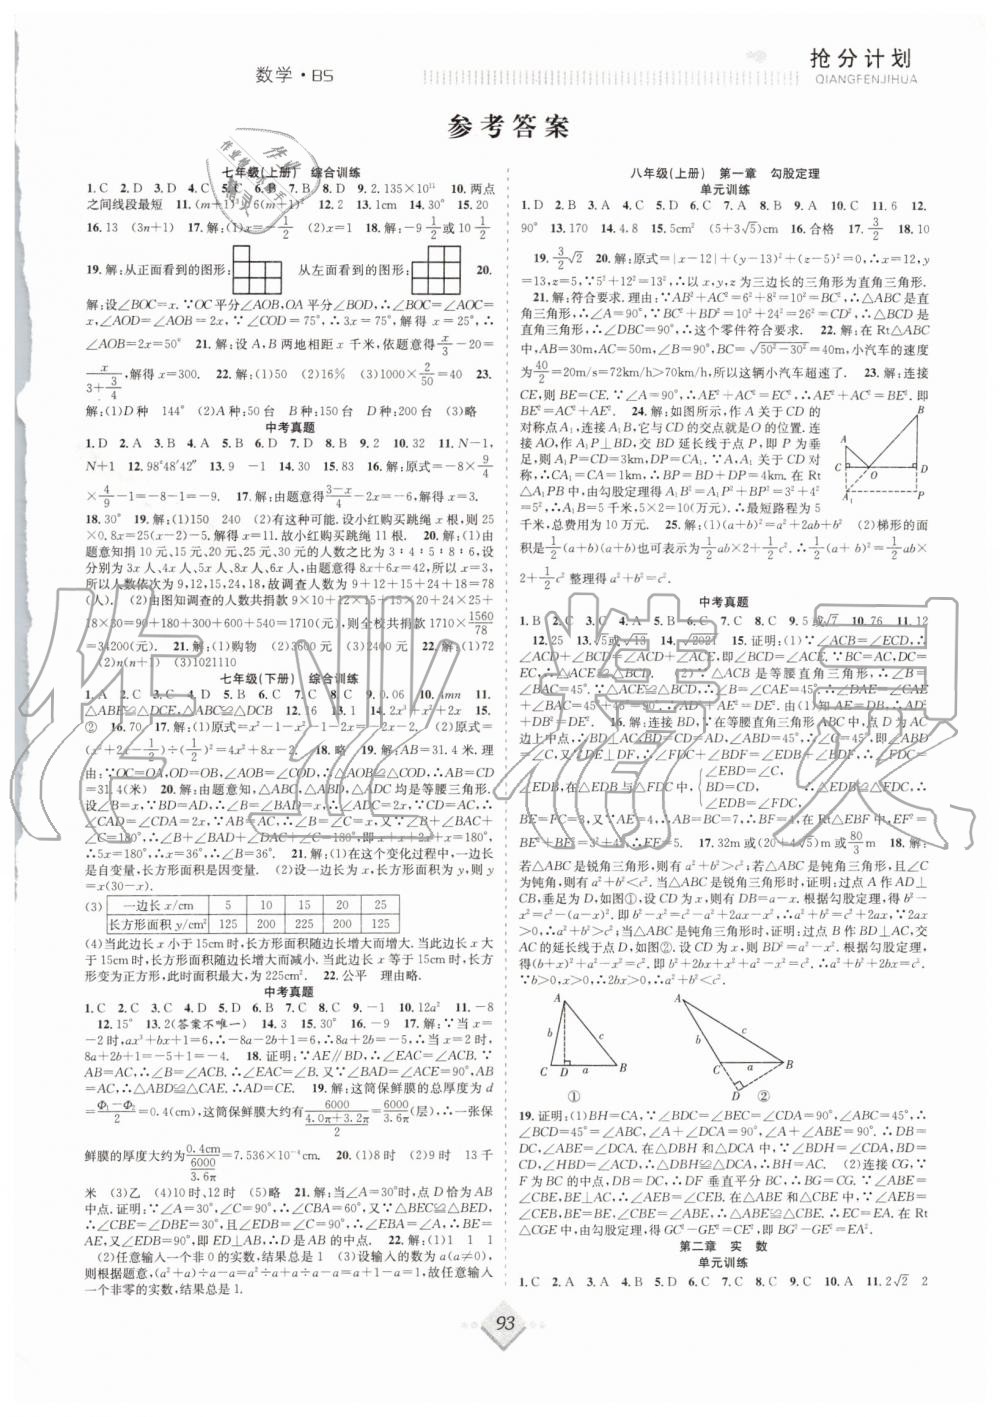 数学·BS
抢分计划
QIANGFENJIHUA
参考答案
七年级(上册) 综合训练
1.C 2.D 3.C 4.D 5.C 6.B 7.B 8.D 9.2.135×10¹¹ 10.两点
之间线段最短 11.(m+1)² 6(m+1)² 12.2 13.1cm 14.30° 15.20
16.13 (3n+1) 17.解:(1)x=-1/2 (2)x=1 18.解:-9 1/2或10 1/2
19.解:从正面看到的图形: 从左面看到的图形: 20.
解:设∠BOC=x.∵OC平分∠AOB,OA平分∠BOD,∴∠BOC=∠AOC=
x,∠AOD=∠AOB=2x,∵∠COD=75°,∴3x=75°,解得x=25°,∴
∠AOB=2x=50° 21.解:设A,B两地相距x千米,依题意得x/3-20=
x/(3+3/4),解得x=300. 22.解:(1)50 (2)16% (3)1000×2/50=40 23.
解:(1)D种 144° (2)A种:50台 B种:150台 D种:200台 (3)略
中考真题
1.D 2.A 3.C 4.B 5.C 6.C 7.D 8.D 9.2 10.32 11.N-1,
N+1 12.98°48′42″ 13.9 -1 14.30 15.83 16.解:原式=-8×9/4
×4/9-1=-8-1=-9. 17.解:由题意得(3-x)/4-2x=-6,解得x=3.
18.30° 19.解:(1)150 240 (2)有这种可能.设小红购买跳绳x根,则25
×0.8x=25(x-2)-5.解得x=11.故小红购买跳绳11根. 20.解:(1)由
题意知捐10元、15元、20元、25元、30元的人数之比为3∶4∶5∶8∶6,设
分别为3x人、4x人、5x人、8x人、6x人,由题意得8x+6x=42,所以x=3,
所以人数依次为9,12,15,24,18,故调查人数9+12+15+24+18=78
(人). (2)由图知调查的人数共捐款9×10+12×15+15×20+24×25+
18×30=90+180+300+600+540=1710(元),则全校共捐款1710×1560/78
=34200(元). 21.解:(1)购物 (2)3600元 (3)2400元 22.解:(1)72
(2)n(n+1) (3)1021110
七年级(下册) 综合训练
10.4mn 11.
△ABE≌△DCE,△ABC≌△DCB 12.36 13.1 14.2x³+x²+2x 15.
② 16.70 17.解:(1)原式=x²-1-x²-1-2x=-2x-2. (2)原式=
(x²+2x-1/2)÷(1/2)²=4x²+8x-2. 18.略 19.解:AB=31.4米.理
由:∵OC=OA,OD=OB,∠AOB=∠COD,∴△AOB≌△COD,∴AB=CD
=31.4(米) 20.解:由题意知,△ABC,△ABD,△ADC均是等腰三角形.
设∠B=x,∵BD=AD,∴∠B=∠BAD=x,∴∠ADC=2x,∵AC=DC,∴
∠CAD=∠CDA=2x,∵AB=AC,∴∠B=∠C=x,又∵∠B+∠BAC+
∠C=180°,∴∠B+∠BAD+∠DAC+∠C=180°,即x+x+2x+x=180°,
∴5x=180°,∴x=36°,∴∠B=36°. 21.解:(1)在这个变化过程中,一边长
是自变量,长方形面积是因变量. (2)设一边长为x,长方形面积为y,则y
=x(30-x).
(3) 一边长x/cm 5 10 15 20 25
长方形面积y/cm² 125 200 225 200 125
(4)当此边长x小于15cm时,长方形面积随边长增大而增大.当此边长x大
于15cm时,长方形面积随边长增大而减小. (5)当此边长x=15cm时,长方
形变为正方形,此时面积最大,为225cm². 22.公平 理由略.
中考真题
1.C 2.C 3.C 4.D 5.D 6.B 7.C 8.C 9.-1 10.12a² 11.-8
12.15° 13.2(答案不唯一) 14.3 15.30° 16.-9 17.解:∵当x=
-2时,ax³+bx+1=6,∴-8a-2b+1=6,∴8a+2b=-5.∴当x=2时,
8a+2b+1=-5+1=-4. 18.证明:∵AE∥BD,∴∠EAC=∠ACB.∵
AB=AC,∴∠B=∠ACB.∴∠EAC=∠B.又∵∠BAD=∠ACE=90°,AB=
AC,∴△ABD≌△CAE.∴AD=CE. 19.解:∵这筒保鲜膜的总厚度为d
=(Φ₁-Φ₂)/2=0.4(cm),这筒保鲜膜大约有6000/((4.0π+3.2π)/2)=6000/3.6π(层),∴一张保
鲜膜的厚度大约为0.4cm/(6000/3.6π)=7.536×10⁻⁴cm. 20.(1)8时 (2)9时 13千
米 (3)乙 (4)10时、12时 (5)略 21.解:当△ABC满足AC=AB时,点D恰为AB
中点.证明:∵∠A=30°,∠C=90°,∴∠CBA=60°,又∵△BEC≌△BED,
∴∠CBE=∠DBE=30°,且∠EDB=∠C=90°,∴∠EBA=∠A,∴BE=
AE,又∵∠BDE=90°,即ED⊥AB,∴D是AB的中点. 22.解:(1)1 1 1
(2)任意输入一个非0的实数,结果总是1 (3)设输入的数为a(a≠0),
则根据题意,(a²+a)÷a-a=a²÷a+a÷a-a=a+1-a=1,故任意输入
一个非零的实数,结果总是1.
八年级(上册) 第一章 勾股定理
单元训练
1.D 2.B 3.A 4.C 5.A 6.D 7.C 8.C 9.D 10.C 11.6 12.
90° 13.170 14.4.8 15.5cm² (5+3√5)cm 16.合格 17.3/2 18.10
19.3/2√2 20.解:原式=|x-12|+(y-13)²+(z-5)²=0,∴x=12,y
=13,z=5,∵5²+12²=13²,∴以x,y,z为三边长的三角形为直角三角形.
21.解:符合要求.理由:∵AB²+AC²=6²+8²=10²=BC²,∴△ABC是直
角三角形,∴∠A=90°,∵BC²+BD²=10²+24²=26²=CD²,∴△BCD是
直角三角形,∴∠DBC=90°,∴这个零件符合要求. 22.解:在Rt△ABC
中,AB=30m,AC=50m,∠B=90°,∴BC=√(50²-30²)=40m,小汽车的速度
为40/2=20m/s=72km/h>70km/h,所以这辆小汽车超速了. 23.解:连接
CE,则BE=CE.∵∠A=90°,∴AE²+AC²=EC²,∴AE²+AC²=BE².即
BE²=AC²+AE². 24.解:如图所示,作A关于CD的
对称点A₁,连接A₁B,它与CD的交点就是O的位置.连
接AO,作A₁P⊥BD,交BD延长线于点P,即P为垂
足,则A₁P=CD=3km,DP=CA₁.∵A、A₁关于CD对
称,∴CA₁=CA=1km,∴BP=BD+DP=4km.在Rt
△A₁PB中,由勾股定理得A₁B²=A₁P²+BP²=3²+4²
=5²,∴A₁B=5千米,5×2=10(万元).∴最短路程为5
千米,总费用为10万元. 25.解:(1)(a+b)²=a²+2ab+b² (2)梯形的面
积是1/2(a+b)(a+b)=1/2(a+b)²也可表示为1/2ab×2+1/2c²,∴1/2(a+b)²=1/2ab×
2+1/2c²整理得a²+b²=c².
中考真题
1.B 2.C 3.A 4.B 5.C 6.B 7.C 8.C 9.5或√7 10.76 11.12
15.证明:(1)∵∠ACB=∠ECD,∴
∠ACD+∠BCD=∠ACD+∠ACE,∴∠BCD=∠ACE.∵BC=AC,DC=
EC,∴△ACE≌△BCD. (2)∵△ACB是等腰直角三角形,∴∠B=
∠BAC=45°.∵△ACE≌△BCD,∴∠B=∠CAE=45°,∴∠DAE=∠CAE
+∠BAC=45°+45°=90°,∴AD²+AE²=DE².由(1)知AE=DB,∴AD²
+DB²=DE². 16.解:连接BD,∵在等腰直角三角形ABC中,点D为AC
边上中点,∴BD⊥AC,BD=CD=AD,∠ABD=45°,∴∠C=45°,∴∠ABD
=∠C,又∵DE⊥DF,∴∠FDC+∠BDF=∠EDB+∠BDF,∴∠FDC=
∠EDB,在△EDB与△FDC中,∠EBD=∠C,BD=CD,∠EDB=∠FDC,∴△EDB≌△FDC,∴
BE=FC=3,又∵AE=4,∴AB=BC=7,∴BF=4,在Rt△EBF中,EF²=
BE²+BF²=3²+4²,∴EF=5. 17.32m或(20+4√5)m或80/3m 18.解:
若△ABC是锐角三角形,则有a²+b²>c²;若△ABC是钝角三角形,且∠C
为钝角,则有a²+b²<c².当△ABC为锐角三角形时,证明:过点A作AD⊥
CB,垂足为D,如图①,设CD为x,则有DB=a-x.根据勾股定理,得b²-
x²=c²-(a-x)².即b²-x²=c²-a²+2ax-x²,∴a²+b²=c²+2ax,∵2ax
>0,∴a²+b²>c².当△ABC是钝角三角形时,证明:过点B作BD⊥AC,交
AC的延长线于点D,如图②.设CD为x,则BD²=a²-x²,根据勾股定理,
得(b+x)²+a²-x²=c²,即b²+2bx+x²+a²-x²=c²,∴a²+b²+2bx=c².
∵b>0,x>0,∴2bx>0,∴a²+b²<c².
① ②
19.证明:(1)BH=CA,∵∠BDC=∠BEC=∠CDA=90°,∠ABC=45°,∴
∠BCD=45°=∠ABC,∠A+∠DCA=90°,∠A+∠ABE=90°.∴DB=
DC,∠ABE=∠DCA.在△DBH和△DCA中,∵∠BDH=∠CDA,BD=
CD,∠HBD=∠ACD,∴△DBH≌△DCA.∴BH=AC. (2)连接CG,∵
F为BC的中点,DB=DC,∴DF垂直平分BC,∴BG=CG.∵∠ABE=
∠CBE,BE⊥AC,∴∠AEB=∠CEB.在△ABE和△CBE中,∵∠AEB
=∠CEB,BE=BE,∠CBE=∠ABE,∴△ABE≌△CBE.∴EC=EA.在Rt
△CGE中,由勾股定理,得CG²-GE²=CE²,即BG²-GE²=EA².
第二章 实数
单元训练
1.C 2.A 3.B 4.B 5.D 6.C 7.D 8.C 9.C 10.A 11.2√2 2
93